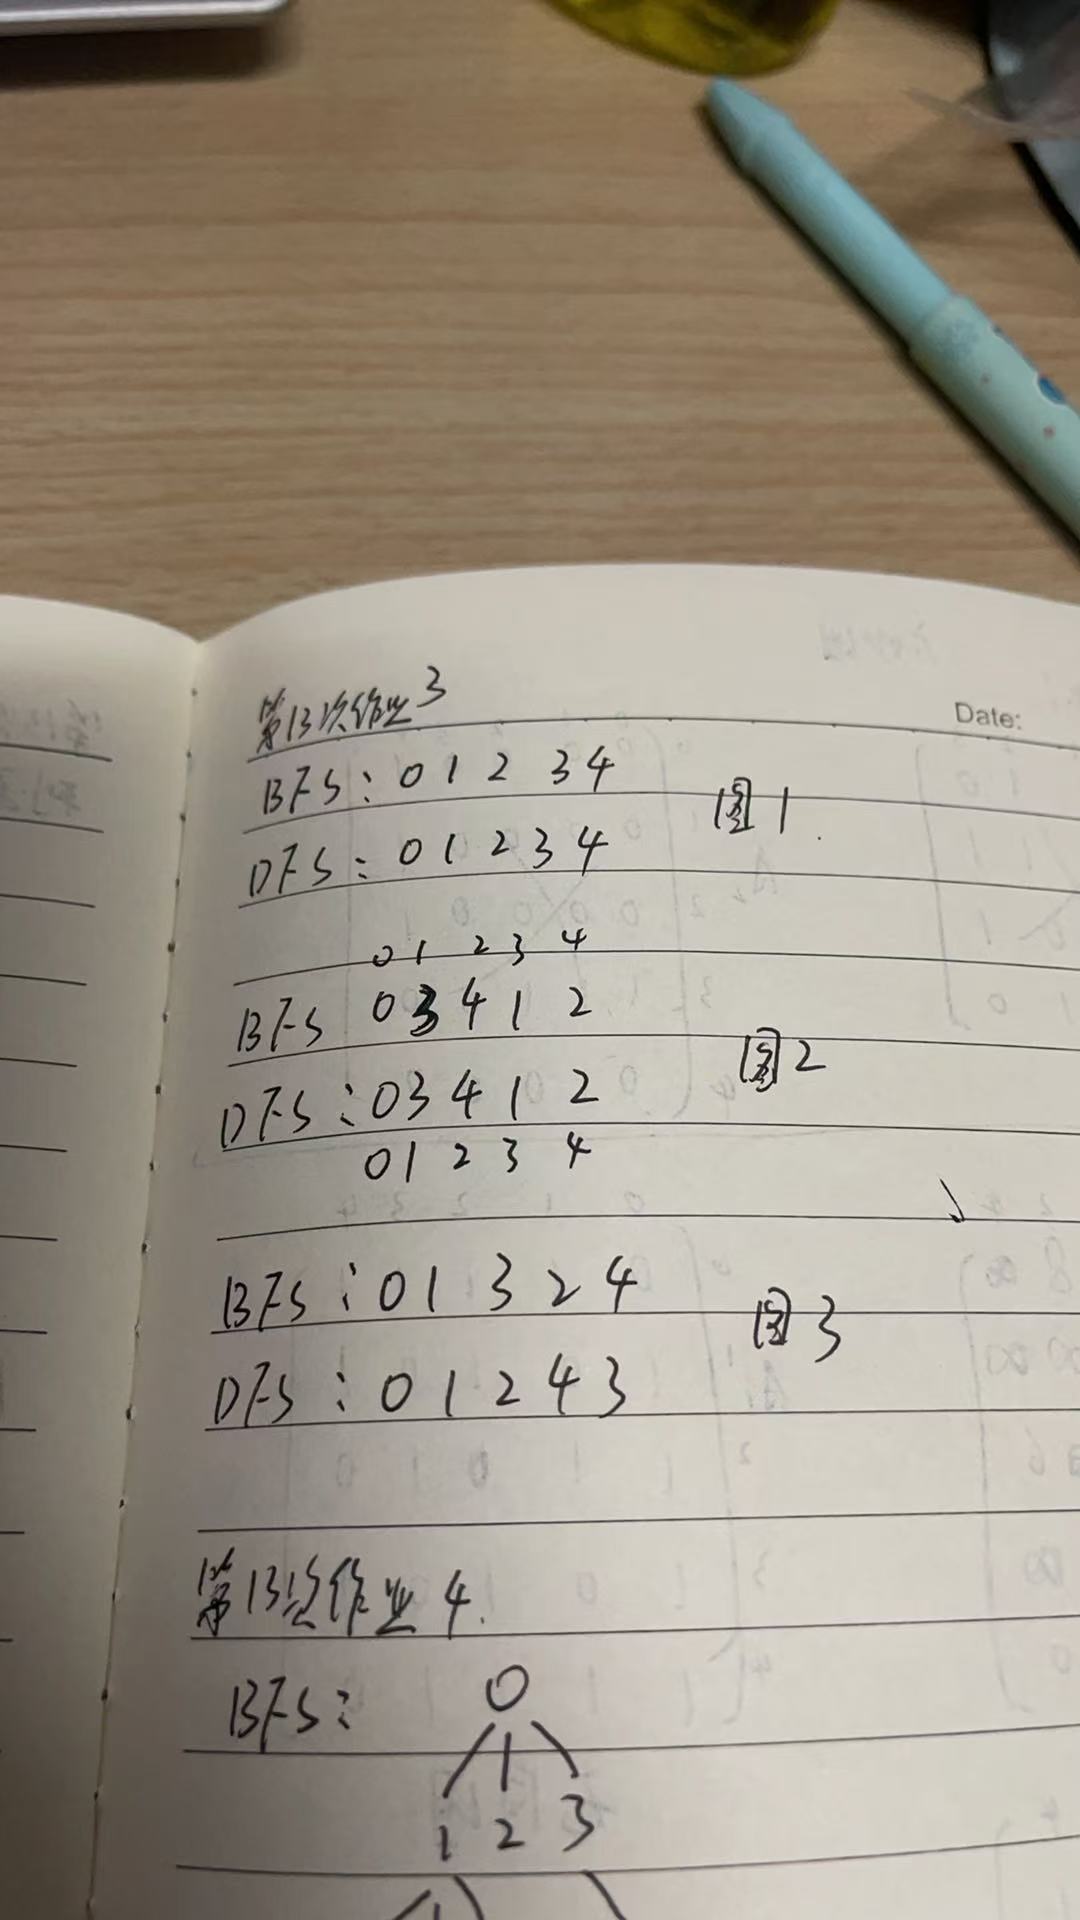 第13次作业3
Date:
BFS: 0 1 2 3 4
图1.
DFS: 0 1 2 3 4
0 1 2 3 4
BFS 0 3 4 1 2
图2
DFS: 0 3 4 1 2
0 1 2 3 4
BFS: 0 1 3 2 4
图3
DFS: 0 1 2 4 3
第13次作业4.
BFS: 0
1 2 3